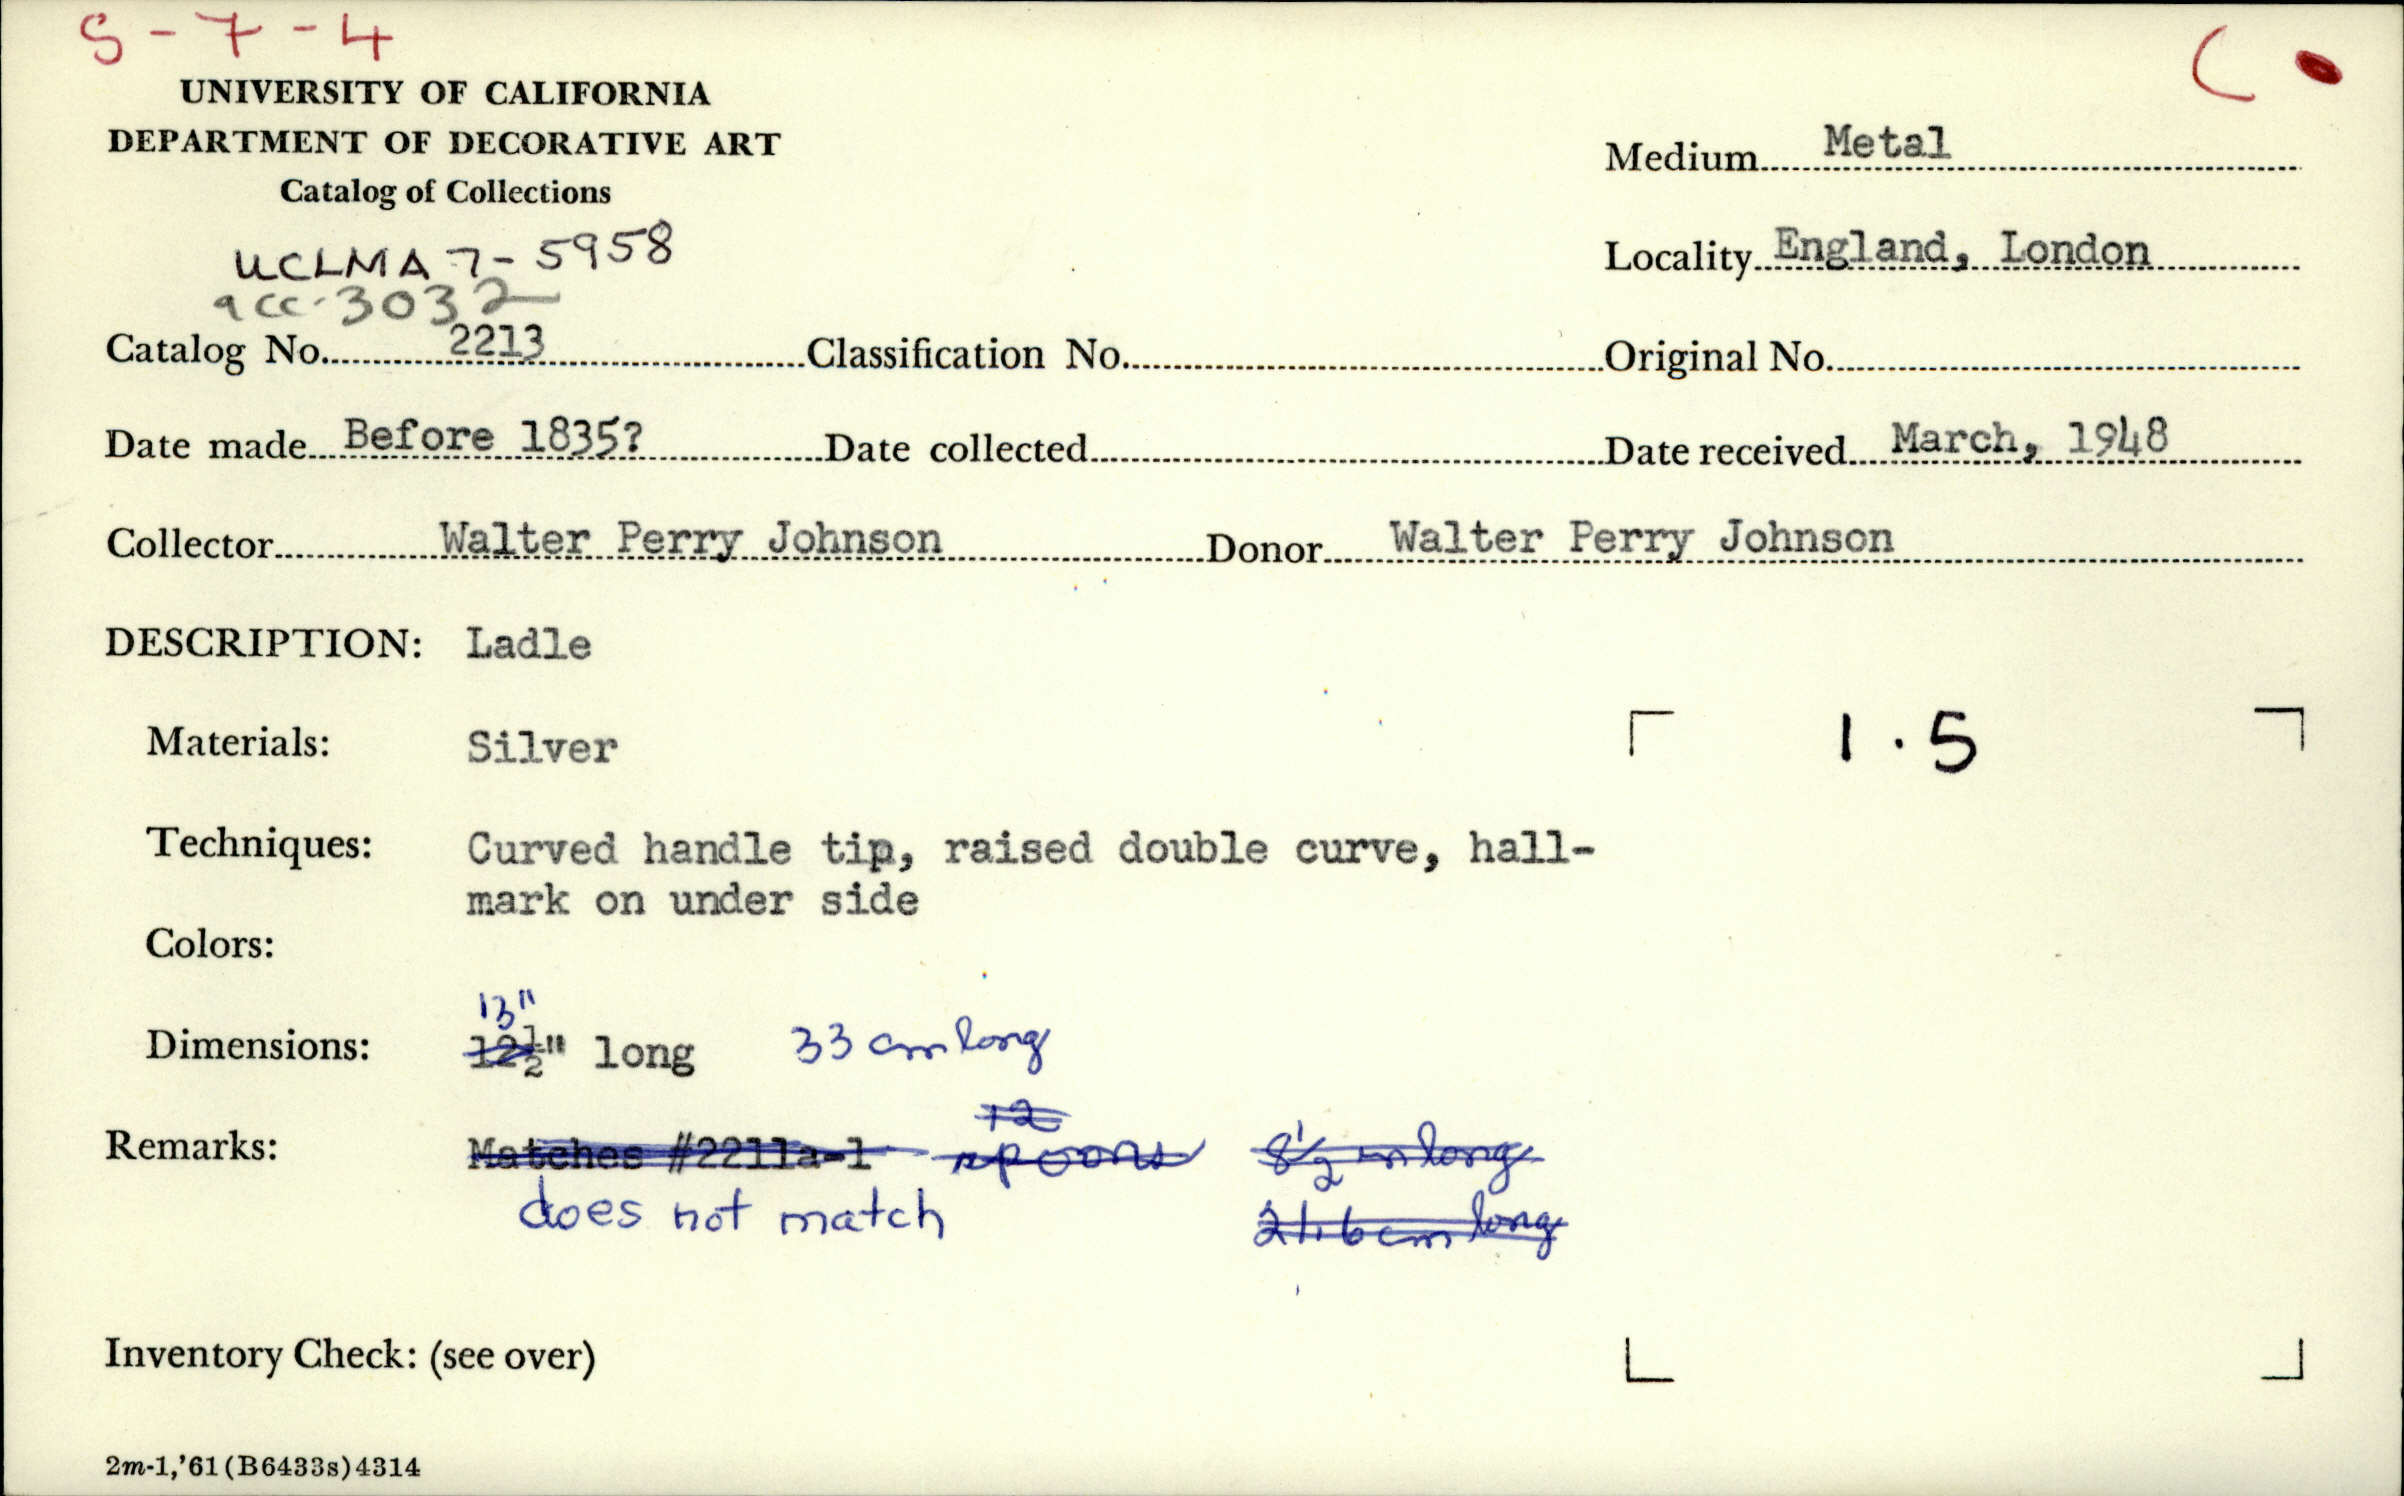 S-7-4
UNIVERSITY OF CALIFORNIA
DEPARTMENT OF DECORATIVE ART
Catalog of Collections
Medium Metal
UCLMA 7-5958
Locality England, London
acc. 3032
Catalog No. 2213 Classification No. Original No.
Date made Before 1835? Date collected Date received March, 1948
Collector Walter Perry Johnson Donor Walter Perry Johnson
DESCRIPTION: Ladle
Materials: Silver
1.5
Techniques: Curved handle tip, raised double curve, hall-
mark on under side
Colors:
13"
Dimensions: 12½" long 33 cm long
12
Remarks: Matches #2211a-l spoons 8½ in long
does not match 21.6 cm long
Inventory Check: (see over)
2m-1,'61(B6433s)4314